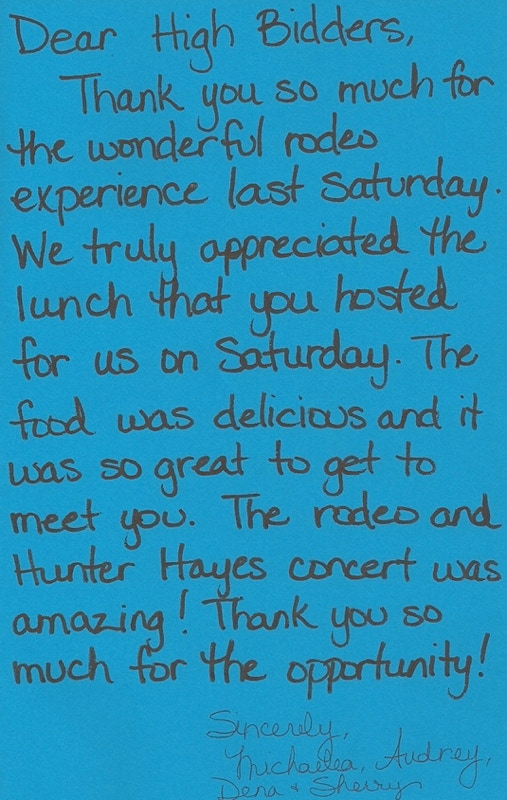 Dear High Bidders,
Thank you so much for
the wonderful rodeo
experience last Saturday.
We truly appreciated the
lunch that you hosted
for us on Saturday. The
food was delicious and it
was so great to get to
meet you. The rodeo and
Hunter Hayes concert was
amazing! Thank you so
much for the opportunity!
Sincerely,
Michaela, Audrey,
Dena + Sherry